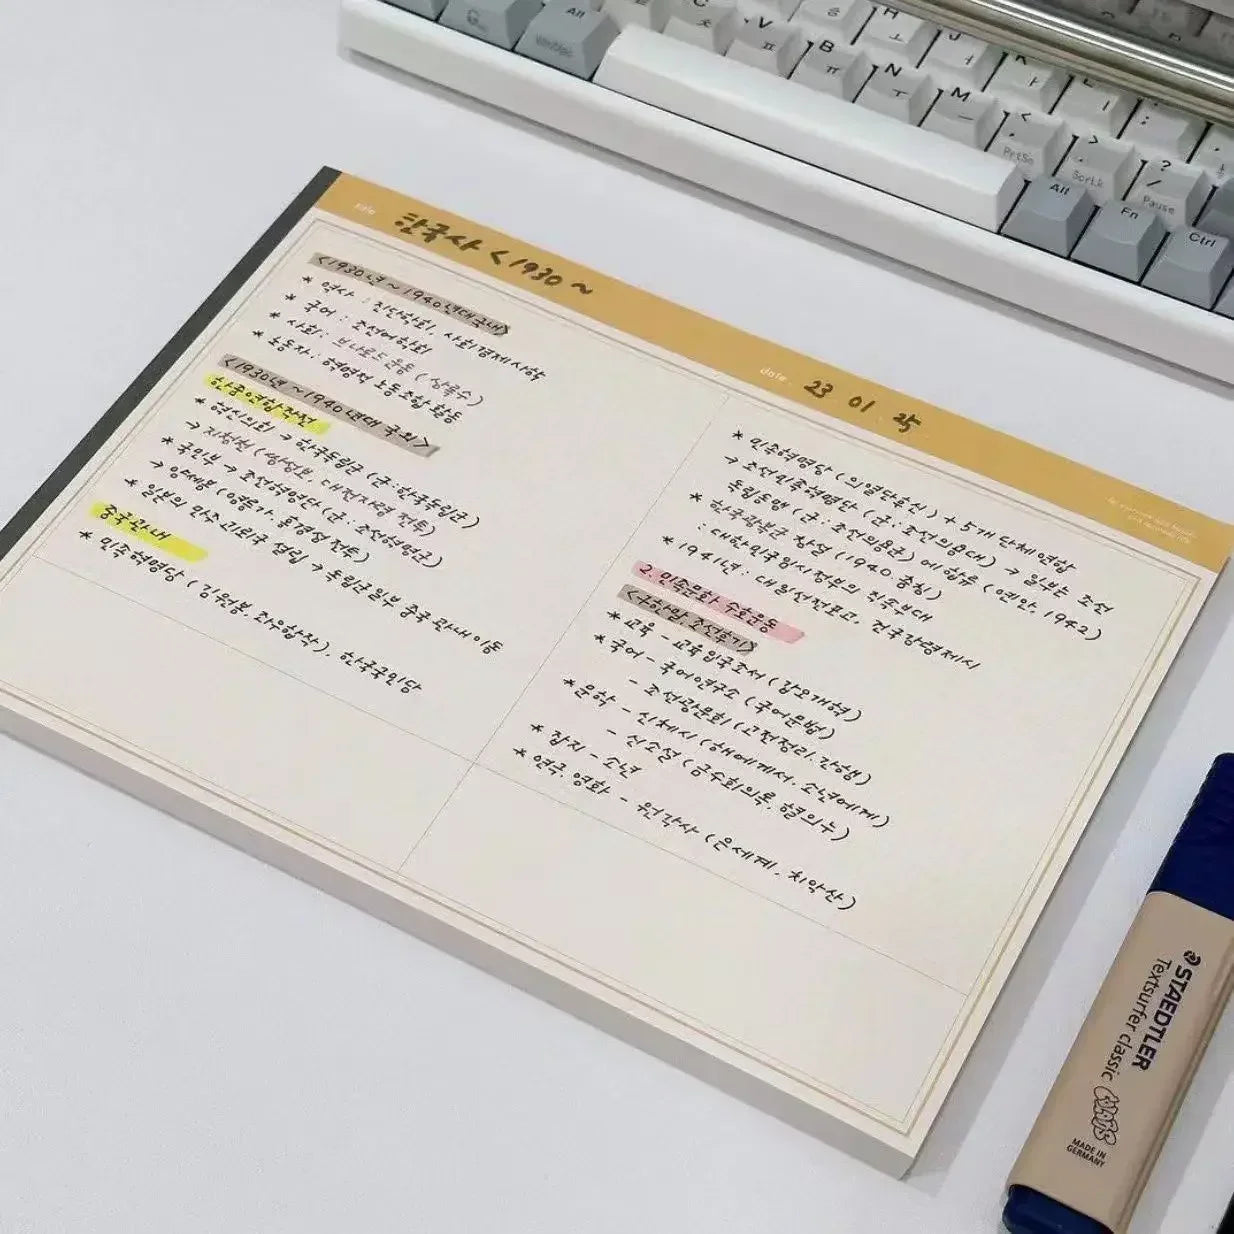 한국사 <1930 ~
date. 23 01. 25
<1930년 ~ 1940년대 국내>
* 역사 : 진단학회, 사회경제사학
* 국어 : 조선어학회
* 사회 : 브나로드운동 (상록수)
* 노동자 : 혁명적 노동조합 활동
<1930년 ~ 1940년대 국외>
한중연합작전
* 혁신의회 → 한국독립군 (군:한국독립군)
→ 지청천 (쌍성보, 대전자령 전투)
* 국민부 → 조선혁명당 (군:조선혁명군)
→ 양세봉 (영릉가 흥경성 전투)
* 일본의 만주 괴뢰국 건립 → 독립군일부 중국관내이동
중국관내
* 민족혁명당 (김원봉, 좌우합작), 한국국민당
* 민족혁명당 (의열단후신) + 5개 단체 연합
→ 조선민족혁명당 (군:조선의용대) → 일부는 조선
독립동맹 (군:조선의용군)에 합류 (연안, 1942)
* 한국광복군 창설 (1940 충칭)
: 대한민국임시정부의 직속부대
* 1941년 : 대일선전포고, 건국강령제시
2. 민족문화 수호운동
* 교육 - 교육입국조서 (갑오개혁)
* 국어 - 국어연구소 (국어문법)
- 조선광문회 (고전정리.간행)
* 문학 - 신체시 (해에게서.소년에게)
- 신소설 (금수회의록, 혈의누)
* 잡지 - 소년
* 연극, 영화 - 원각사 (은세계, 치악산)
Alt
V ㅍ
B ㅠ
N ㅜ
M ㅡ
PrtSc
ScrLk
Pause
Alt
Fn
Ctrl
STAEDTLER
Textsurfer classic
MADE IN
GERMANY